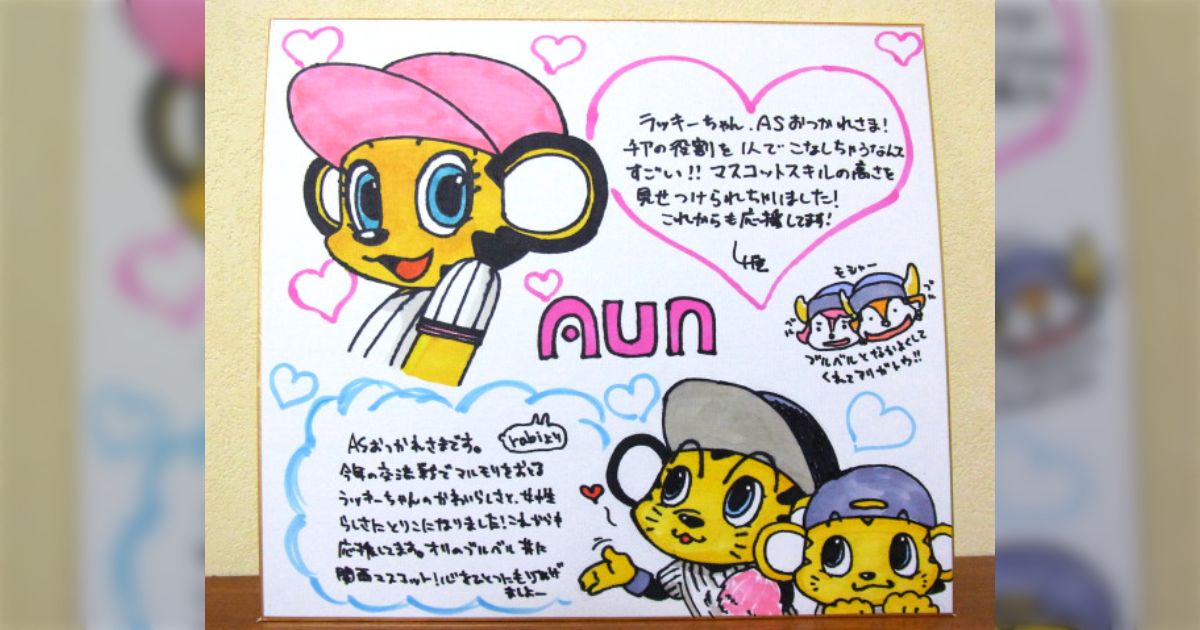 ラッキーちゃん、ASおつかれさま!
チアの役割を1人でこなしちゃうなんて
すごい!! マスコットスキルの高さを
見せつけられちゃいました!
これからも応援してます!
AUN
モシャー
ブルベルとなかよくして
くれてアリガトウ!!
rabiより
ASおつかれさまです。
今年の交流戦でマルモリをおどる
ラッキーちゃんのかわいらしさと、女性
らしさにとりこになりました!これからも
応援してます。オリのブルベル共に
関西マスコット!心をひとつにもりあげ
ましょー